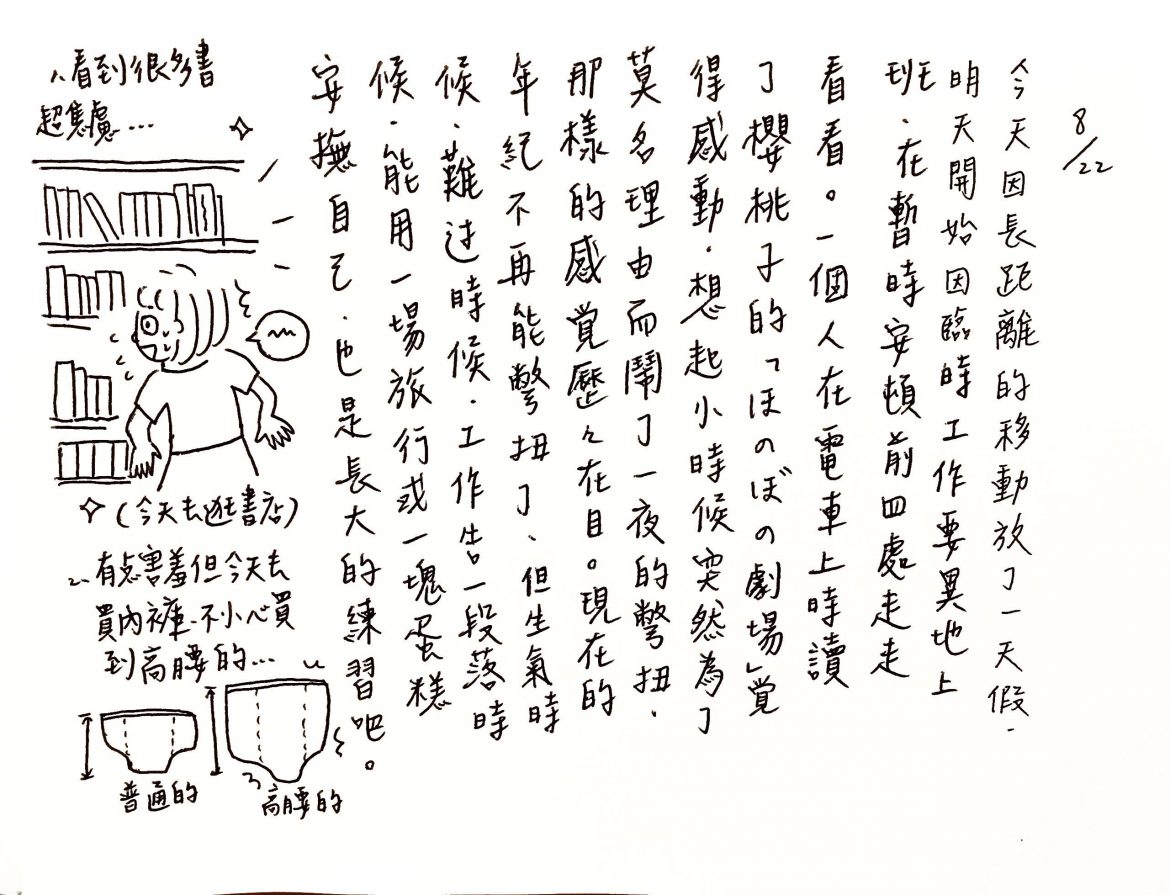 8/22
今天因長距離的移動放了一天假．
明天開始因臨時工作要異地上
班．在暫時安頓前四處走走
看看。一個人在電車上時讀
了櫻桃子的「ほのぼの劇場」覚
得感動．想起小時候突然為了
莫名理由而鬧了一夜的彆扭．
那樣的感覚歷々在目。現在的
年紀不再能彆扭了、但生氣時
候、難过時候．工作告一段落時
候．能用一場旅行或一塊蛋糕
安撫自己．也是長大的練習吧。
1、看到很多書
超焦慮...
(今天去逛書店)
2、有点害羞但今天去
買內褲．不小心買
到高腰的...
普通的
高腰的